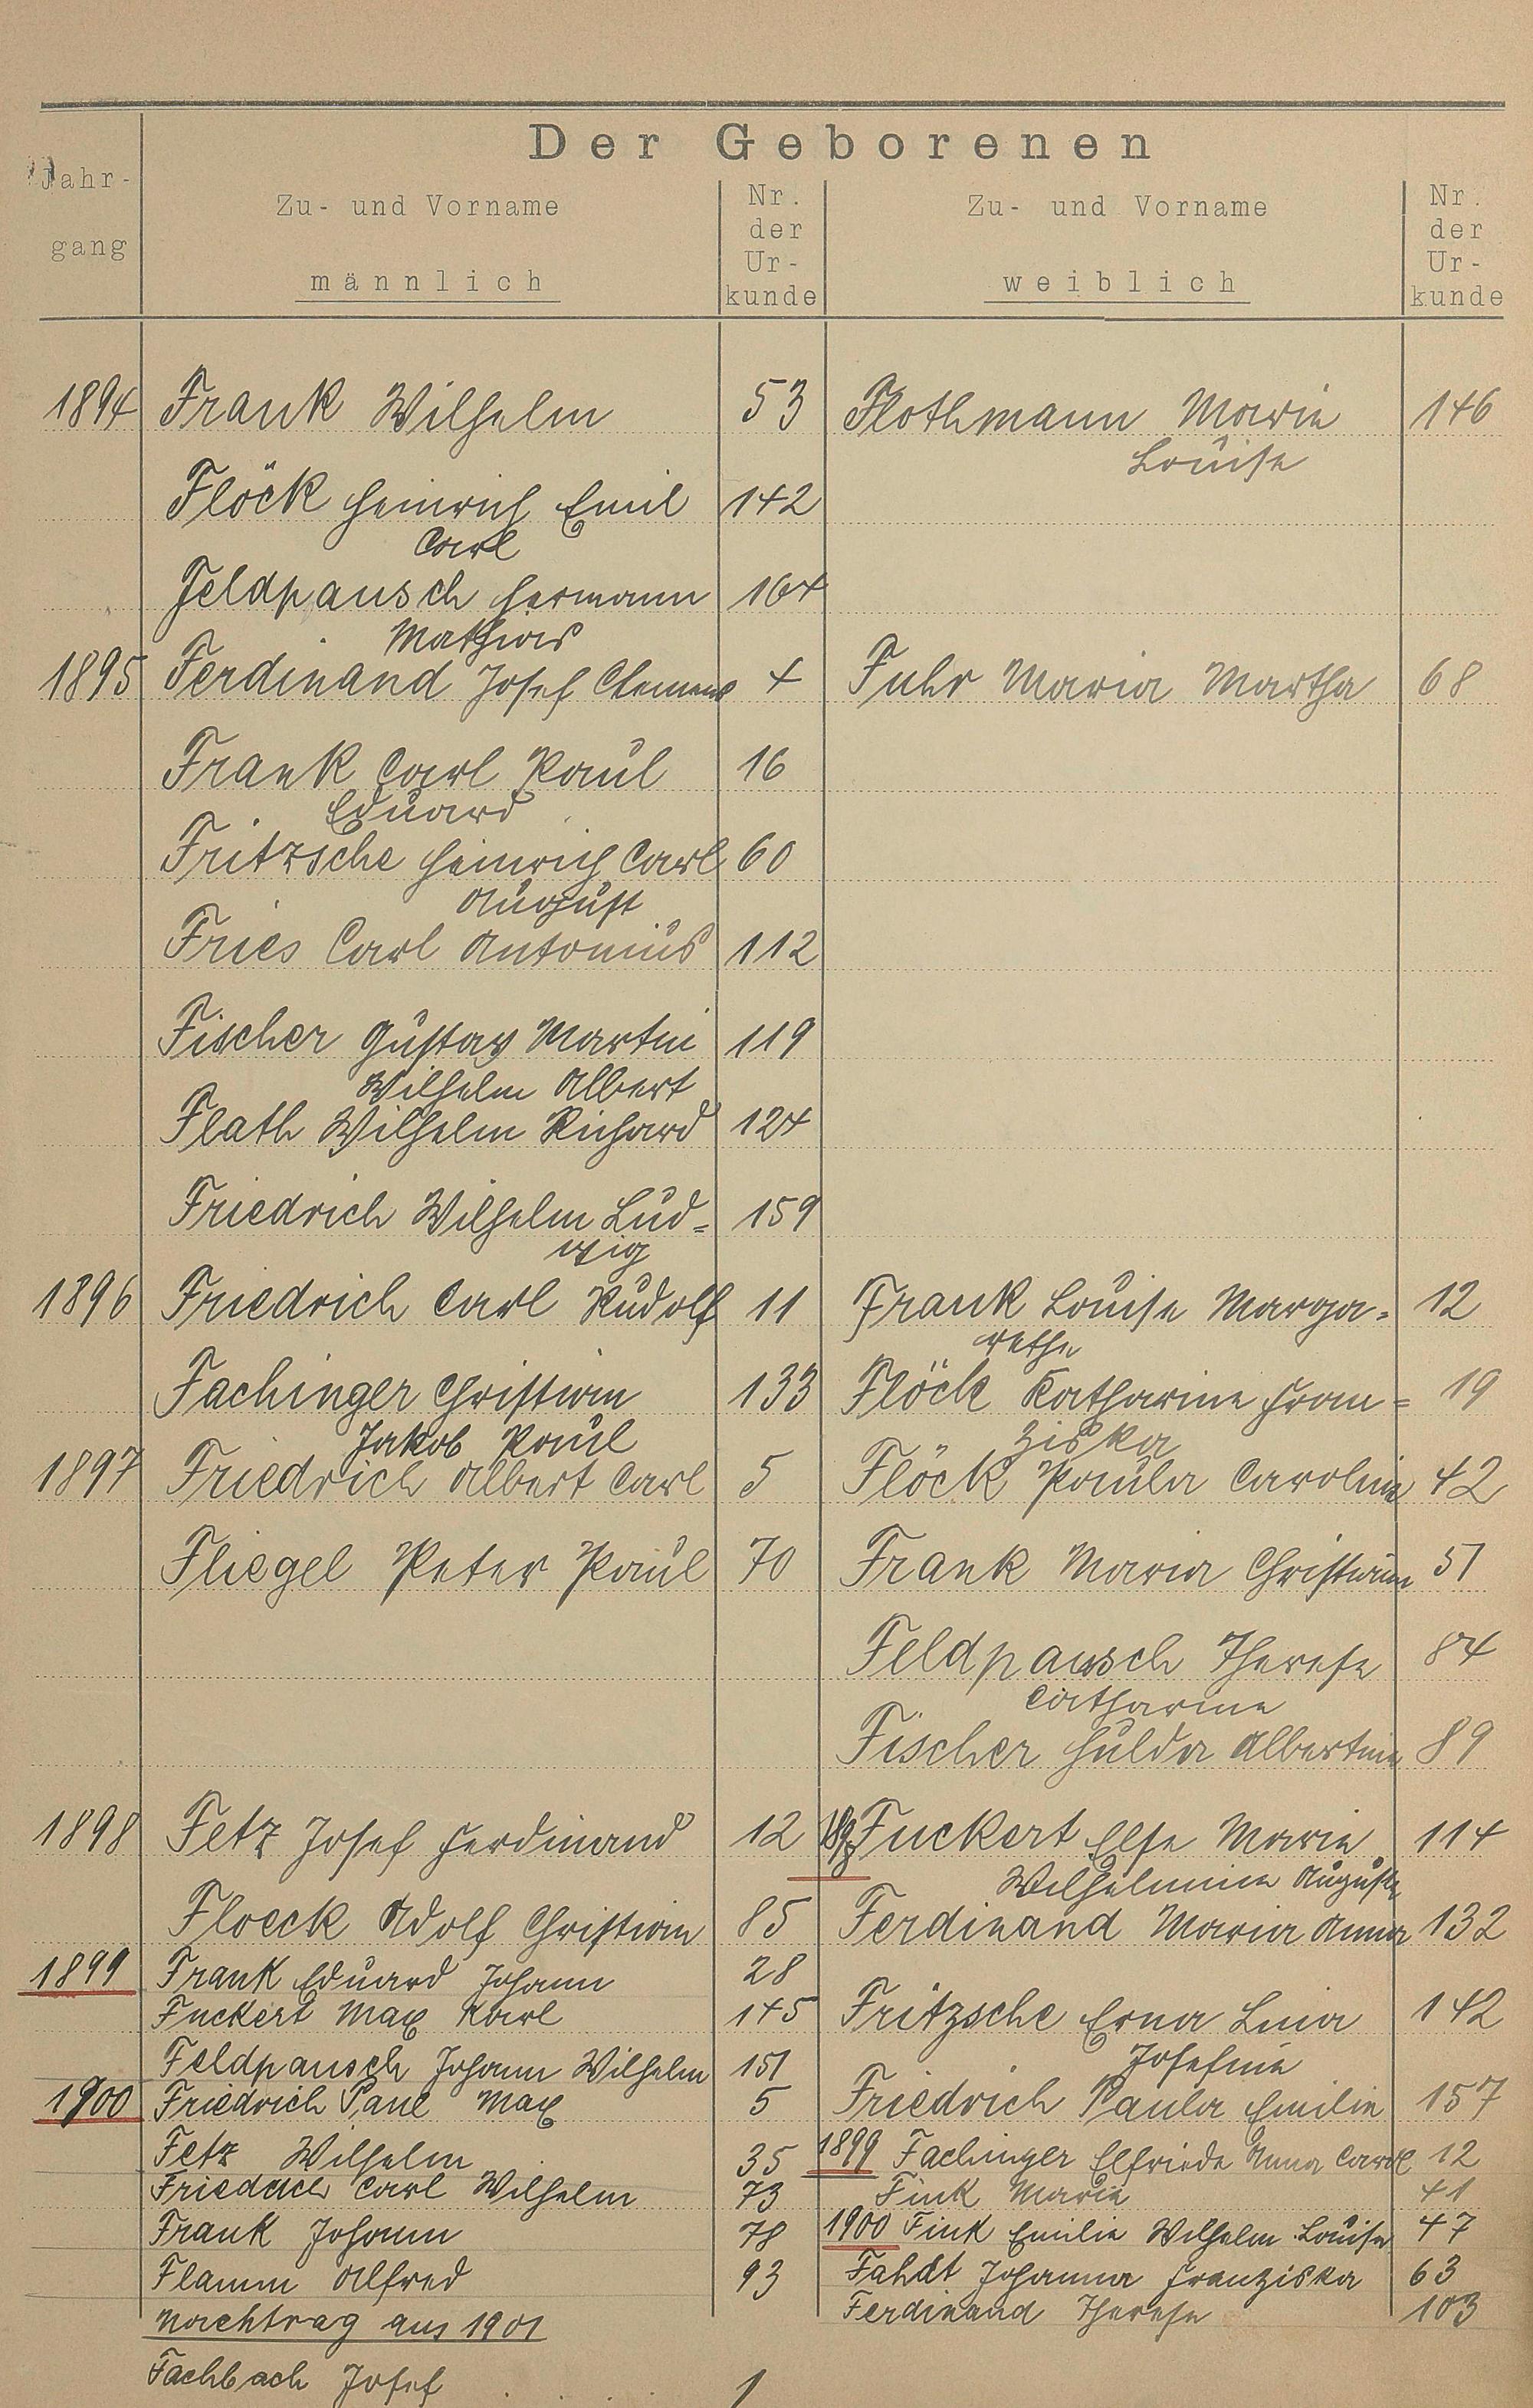 Der Geborenen
Jahr-
gang
Zu- und Vorname
männlich
Nr.
der
Ur-
kunde
Zu- und Vorname
weiblich
Nr.
der
Ur-
kunde
1894 Frank Wilhelm 53 Flothmann Marie 146
Louise
Flöck Heinrich Emil 142
Carl
Feldpausch Hermann 164
Mathias
1895 Ferdinand Josef Clemens 4 Fuhr Maria Martha 68
Frank Carl Paul 16
Eduard
Fritzsche Heinrich Carl 60
August
Fries Carl Antonius 112
Fischer Gustav Martin 119
Wilhelm Albert
Flath Wilhelm Richard 124
Friedrich Wilhelm Lud= 159
wig
1896 Friedrich Carl Rudolf 11 Frank Louise Marga= 12
rethe
Fachinger Christian 133 Flöck Katharine Fran= 19
Jakob Paul ziska
1897 Friedrich Albert Carl 5 Flöck Paula Caroline 42
Fliegel Peter Paul 70 Frank Maria Christiane 51
Feldpausch Therese 84
Catharine
Fischer Hulda Albertine 89
1898 Fetz Josef Ferdinand 12 1898 Fuckert Else Marie 114
Wilhelmine Auguste
Floeck Adolf Christian 85 Ferdinand Maria Anna 132
1899 Frank Eduard Johann 28
Fuckert Max Karl 145 Fritzsche Erna Lina 142
Josefine
Feldpausch Johann Wilhelm 151
1900 Friedrich Paul Max 5 Friedrich Paula Emilie 157
Fetz Wilhelm 35 1899 Fachinger Elfriede Anna Carol 12
Friedrich Carl Wilhelm 73 Fink Marie 41
Frank Johann 78 1900 Fink Emilie Wilhelm. Louise 47
Flamm Alfred 93 Fahdt Johanna Franziska 63
Ferdinand Therese 103
Nachtrag aus 1901
Fachbach Josef . . . . 1